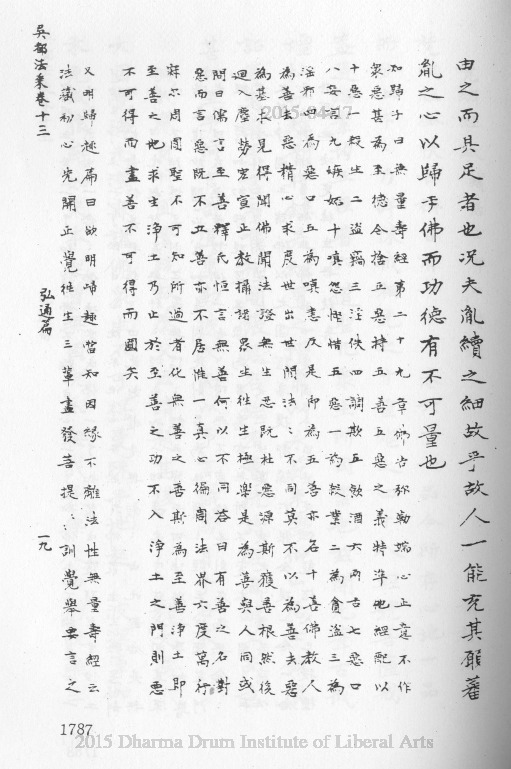 由之而具足者也況夫胤續之細故乎故人一能充其願蕃
胤之心以歸于佛而功德有不可量也
知歸子曰無量壽經第二十九章佛告弥勒端心正意不作
衆惡甚為至德令捨五惡持五善五惡之義特準他經配以
十惡一殺生二盜竊三淫佚四調欺五飲酒六兩舌七惡口
八妄言九嫉妬十嗔忿慳惜五惡一為殺業二為貪盜三為
淫邪四為惡口五為嗔恚反是即為五善亦名十善佛教人
為善去惡精心求度世出世間法∶不同莫不以為善去惡
為基求見得聞佛聞法證無生忍既杜惡源斯獲善根然後
迴入塵勞宏宣正教攝諸眾生往生極樂是為善與人同或
問曰儒言至善釋氏恒言無善何以不同答曰有善之名對
惡而言惡既不立善亦不居惟一真心徧周法界六度萬行
在所周圓聖不可知所過者化無善之善斯為至善淨土即
至善之地求生淨土乃止於至善之功不入淨土之門則惡
不可得而盡善不可得而圓矣
又明歸趣篇曰欲明歸趣當知因緣不離法性無量壽經云
法藏初心先開正覺往生三輩盡發菩提∶訓覺舉要言之
吳都法乘卷十三
弘通篇
一九
1787
2015-04-17
2015 Dharma Drum Institute of Liberal Arts